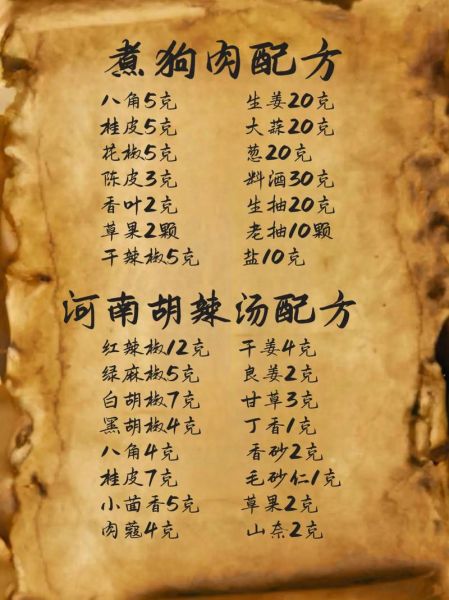 煮狗肉配方
八角5克 生姜20克
桂皮5克 大蒜20克
花椒5克 葱20克
陈皮3克 料酒30克
香叶2克 生抽20克
草果2颗 老抽10颗
干辣椒5克 盐10克
河南胡辣汤配方
红辣椒12克 干姜4克
绿麻椒5克 良姜2克
白胡椒7克 甘草3克
黑胡椒4克 丁香1克
八角4克 香砂2克
桂皮7克 毛砂仁1克
小茴香5克 草果2克
肉蔻4克 山奈2克